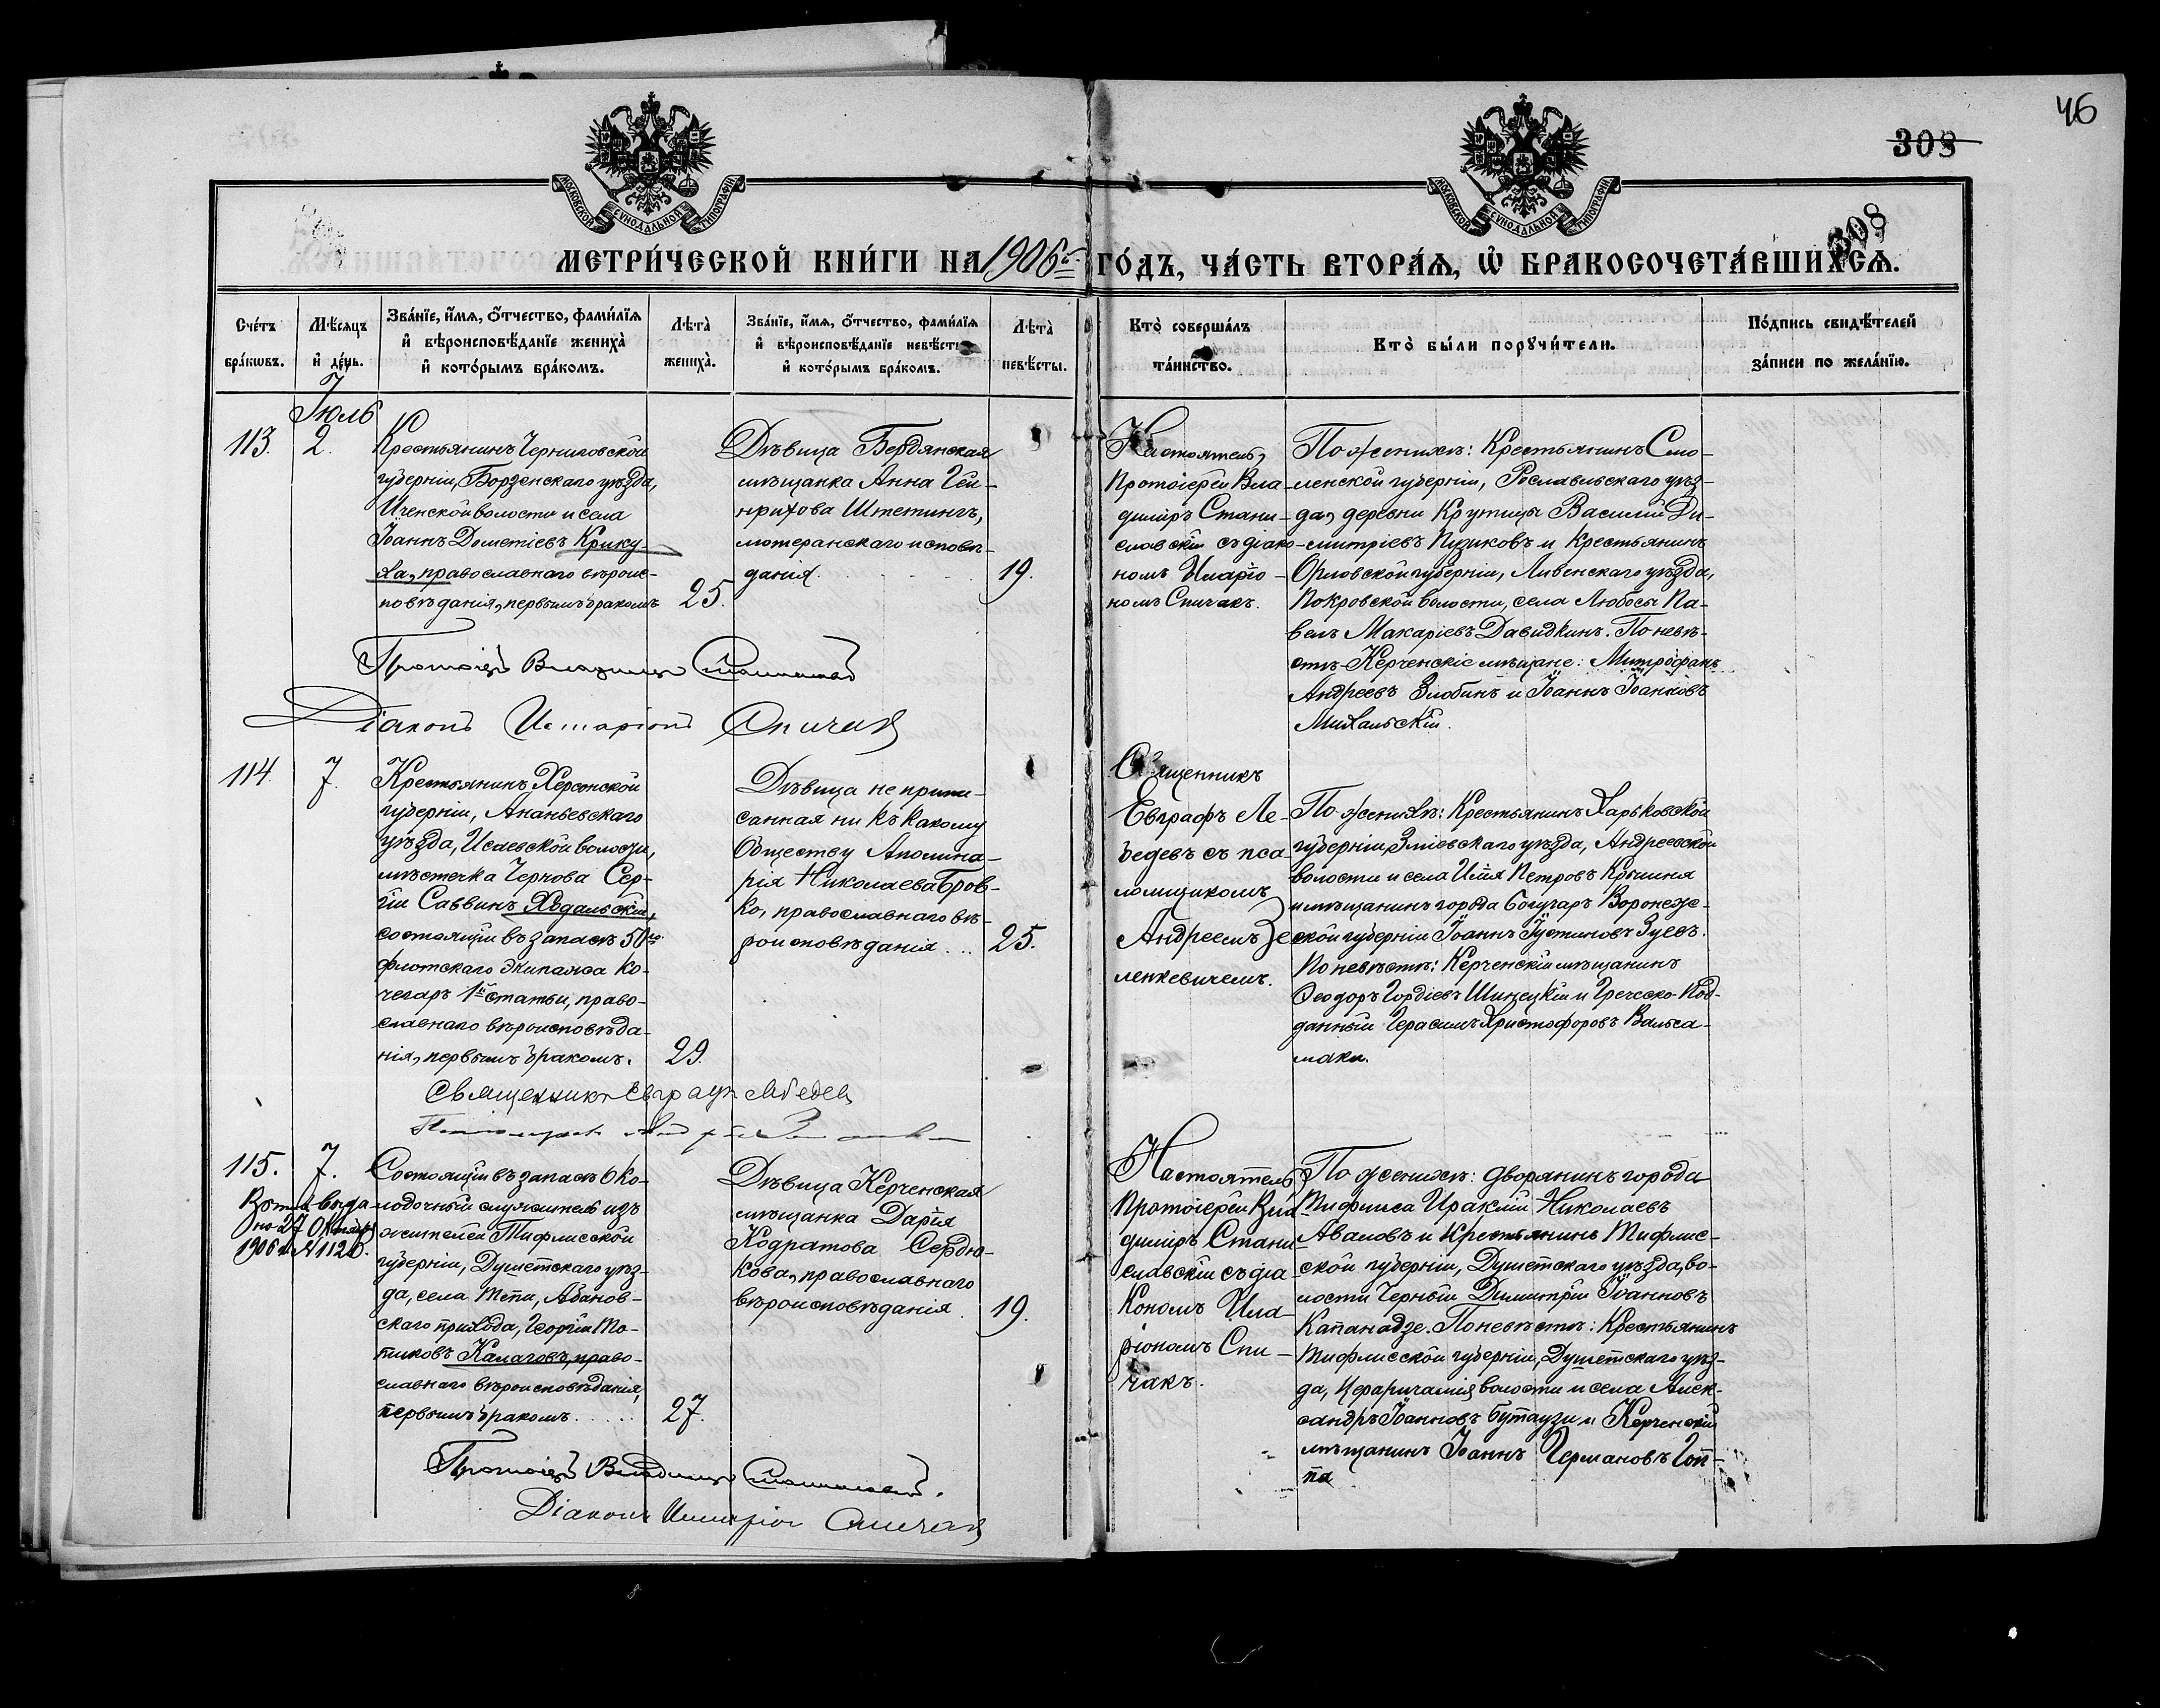 46
308
308
МОСКОВСКОЙ СѴНОДАЛЬНОЙ ТИПОГРАФІИ
МОСКОВСКОЙ СѴНОДАЛЬНОЙ ТИПОГРАФІИ
МЕТРИ́ЧЕСКОЙ КНИ́ГИ НА 1906й ГО́ДЪ, ЧА́СТЬ ВТОРА́Ѧ, Ѽ БРАКОСОЧЕТА́ВШИХСѦ.
Сче́тъ
бра́кѡвъ.
Мѣ́сѧцъ
и҆ де́нь.
Зва́нїе, и҆́мѧ, ѻ҆́тчество, фами́лїѧ
и҆ вѣроисповѣ́данїе жениха̀
и҆ кото́рымъ бра́комъ.
Лѣта̀
жениха̀.
Зва́нїе, и҆́мѧ, ѻ҆́тчество, фами́лїѧ
и҆ вѣроисповѣ́данїе невѣ́сты
и҆ кото́рымъ бра́комъ.
Лѣта̀
невѣ́сты.
Кто̀ соверша́лъ
та́инство.
Кто̀ бы́ли порꙋчи́тели.
По́дпись свидѣ́телей
за́писи по жела́нїю.
Іюль
113.
2.
Крестьянинъ Черниговской
губерніи, Борзенскаго уѣзда,
Иченской волости и села
Іоаннъ Дометіевъ Крику-
ха, православнаго вѣроис-
повѣданія, первымъ бракомъ
25.
Дѣвица Бердянская
мѣщанка Анна Ген-
рихова Штетингъ,
лютеранскаго исповѣ-
данія.
19.
Настоятель,
Протоіерей Вла-
диміръ Стани-
славскій съ діако-
номъ Иларіо-
номъ Спичакъ.
По женихѣ: Крестьянинъ Смо-
ленской губерніи, Рославльскаго уѣз-
да, деревни Крутицы Василій Ди-
митріевъ Пузиковъ и Крестьянинъ
Орловской губерніи, Ливенскаго уѣзда,
Покровской волости, села Любоси Па-
велъ Макаріевъ Давидкинъ. По невѣ-
стѣ-Керченскіе мѣщане: Митрофанъ
Андреевъ Злобинъ и Іоаннъ Іоанновъ
Михальскій.
Протоіерей Владиміръ Станиславскій
Діаконъ Иларіонъ Спичакъ
114.
7.
Крестьянинъ Херсонской
губерніи, Ананьевскаго
уѣзда, Исаевской волости,
мѣстечка Чернова Сер-
гій Саввинъ Ходальскій,
состоящій въ запасѣ 50го
флотскаго экипажа Ко-
чегаръ 1й статьи, право-
славнаго вѣроисповѣда-
нія, первымъ бракомъ.
29.
Дѣвица не припи-
санная ни къ какому
Обществу Аполина-
рія Николаева Бров-
ко, православнаго вѣ-
роисповѣданія...
25.
Священникъ
Евграфъ Ле-
бедевъ съ пса-
ломщикомъ
Андреемъ Зе-
ленкевичемъ.
По женихѣ: Крестьянинъ Харьковской
губерніи, Зміевскаго уѣзда, Андреевской
волости и села Илія Петровъ Кричиня
и мѣщанинъ города Богучаръ Воронеж-
ской губерніи Іоаннъ Іустиновъ Зуевъ.
По невѣстѣ: Керченскій мѣщанинъ
Ѳеодоръ Гордіевъ Шинецкій и Греческо-Под-
данный Герасимъ Христофоровъ Вальса-
маки.
Священникъ Евграфъ Лебедевъ
115.
7.
Вѣтка выда-
но 27 Октября
1906 г. № 1120.
Состоящій въ запасѣ Око-
лодочный служитель изъ
жителей Тифлисской
губерніи, Душетскаго уѣз-
да, села Тепи, Абанов-
скаго прихода, Георгій То-
тиковъ Калаговъ, право-
славнаго вѣроисповѣданія,
первымъ бракомъ.....
27.
Дѣвица Керченская
мѣщанка Дарія
Кодратова Сердю-
кова, православнаго
вѣроисповѣданія.
19.
Настоятель,
Протоіерей Вла-
диміръ Стани-
славскій съ діа-
кономъ Ила-
ріономъ Спи-
чакъ.
По женихѣ: дворянинъ города
Тифлиса Ираклій Николаевъ
Аваловъ и Крестьянинъ Тифлис-
ской губерніи, Душетскаго уѣзда, во-
лости Черный Димитрій Іоанновъ
Капанадзе. По невѣстѣ: Крестьянинъ
Тифлисской губерніи, Душетскаго уѣз-
да, волости и села Алек-
сандръ Іоанновъ Бутаузи и Керченскій
мѣщанинъ Іоаннъ Германовъ Гоп-
па
Протоіерей Владиміръ Станиславскій.
Діаконъ Иларіонъ Спичакъ